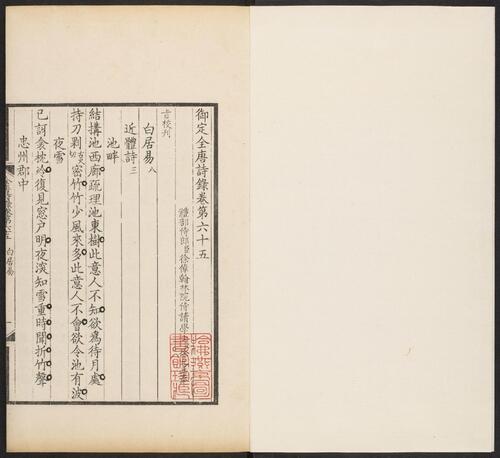 御定全唐詩錄卷第六十五
禮部侍郎臣徐倬翰林院侍讀學
旨校刊
白居易八
近體詩三
池畔
結搆池西廊疏理池東樹此意人不知欲為待月處
持刀剶密竹竹少風來多此意人不會欲令池有波
夜雪
已訝衾枕冷復見窓戶明夜深知雪重時聞折竹聲
忠州郡中
白居易
一